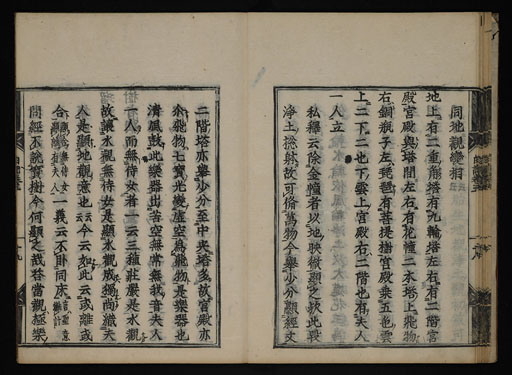 同地觀變相
地上有二重階塔有九輪塔左右有二階宮
殿宮殿與塔間左右有花幢二本塔上飛物
右銅瓶子左琵琶有菩提樹宮殿乘五色雲
上二下二也下雲上宮殿右二階也有夫人
一人立
私釋云除金幢者以地映徹顯之歟此段
淨土揔缺故可備萬物今舉少分顯經文
二階塔亦舉少分至中央塔多故宮殿亦
永飛物七寶光變虛空爲飛物是樂器也
清風鼓此樂器出苦空無常無我音夫人
一人而無侍女者一云三種莊嚴是水觀
故讓水觀無侍女是顯水觀成獨尚纖夫
人是顯地觀意也云云今云如此云或離或
合一義云不卧同床
問經不說寶樹今何顯之哉答當觀極樂